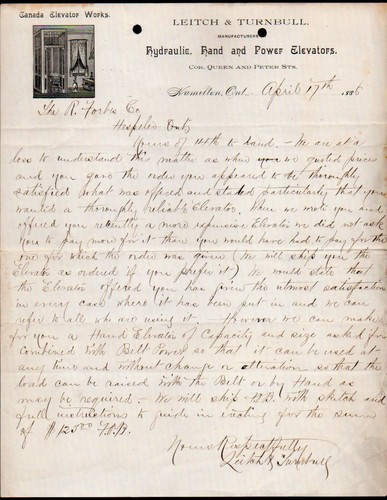 Canada Elevator Works.
LEITCH & TURNBULL,
MANUFACTURERS
Hydraulic, Hand and Power Elevators.
COR. QUEEN AND PETER STS.
Hamilton, Ont. April 17th 1886
The R. Forbes Co.
Hespeler Ont.
Yours of 14th to hand. We are at a
loss to understand this matter as when you we quoted prices
and you gave the order you appeared to be thoroughly
satisfied what was offered and stated particularly that you
wanted a thoroughly reliable Elevator. When we wrote you and
offered you recently a more expensive Elevator we did not ask
you to pay more for it than you would have had to pay for the
one for which the order was given (We will ship you the
Elevator as ordered if you prefer it) We would state that
the Elevator offered you has given the utmost satisfaction
in every case where it has been put in and we can
refer to all who are using it. However we can make
for you a Hand Elevator of Capacity and size asked for
combined with Belt Power so that it can be used at
any time and without change or alteration so that the
load can be raised with the Belt or by Hand as
may be required. We will ship with sketch and
full instructions to guide in erecting for the sum
of $125.00 F.O.B.
Yours Respectfully
Leitch & Turnbull